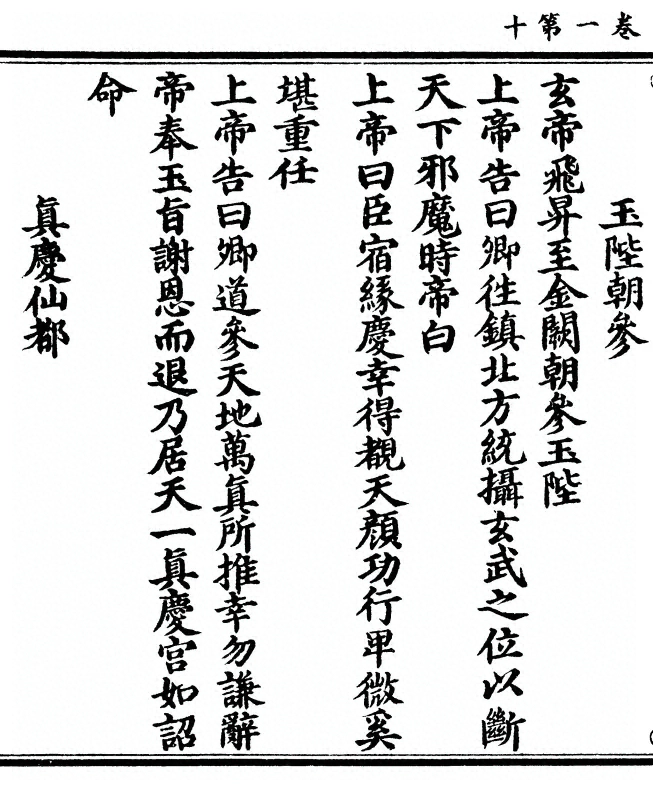 卷一第十
玉陛朝參
玄帝飛昇至金闕朝參玉陛
上帝告曰卿往鎮北方統攝玄武之位以斷
天下邪魔時帝白
上帝曰臣宿緣慶幸得覩天顏功行卑微奚
堪重任
上帝告曰卿道參天地萬眞所推幸勿謙辭
帝奉玉旨謝恩而退乃居天一眞慶宮如詔
命
眞慶仙都